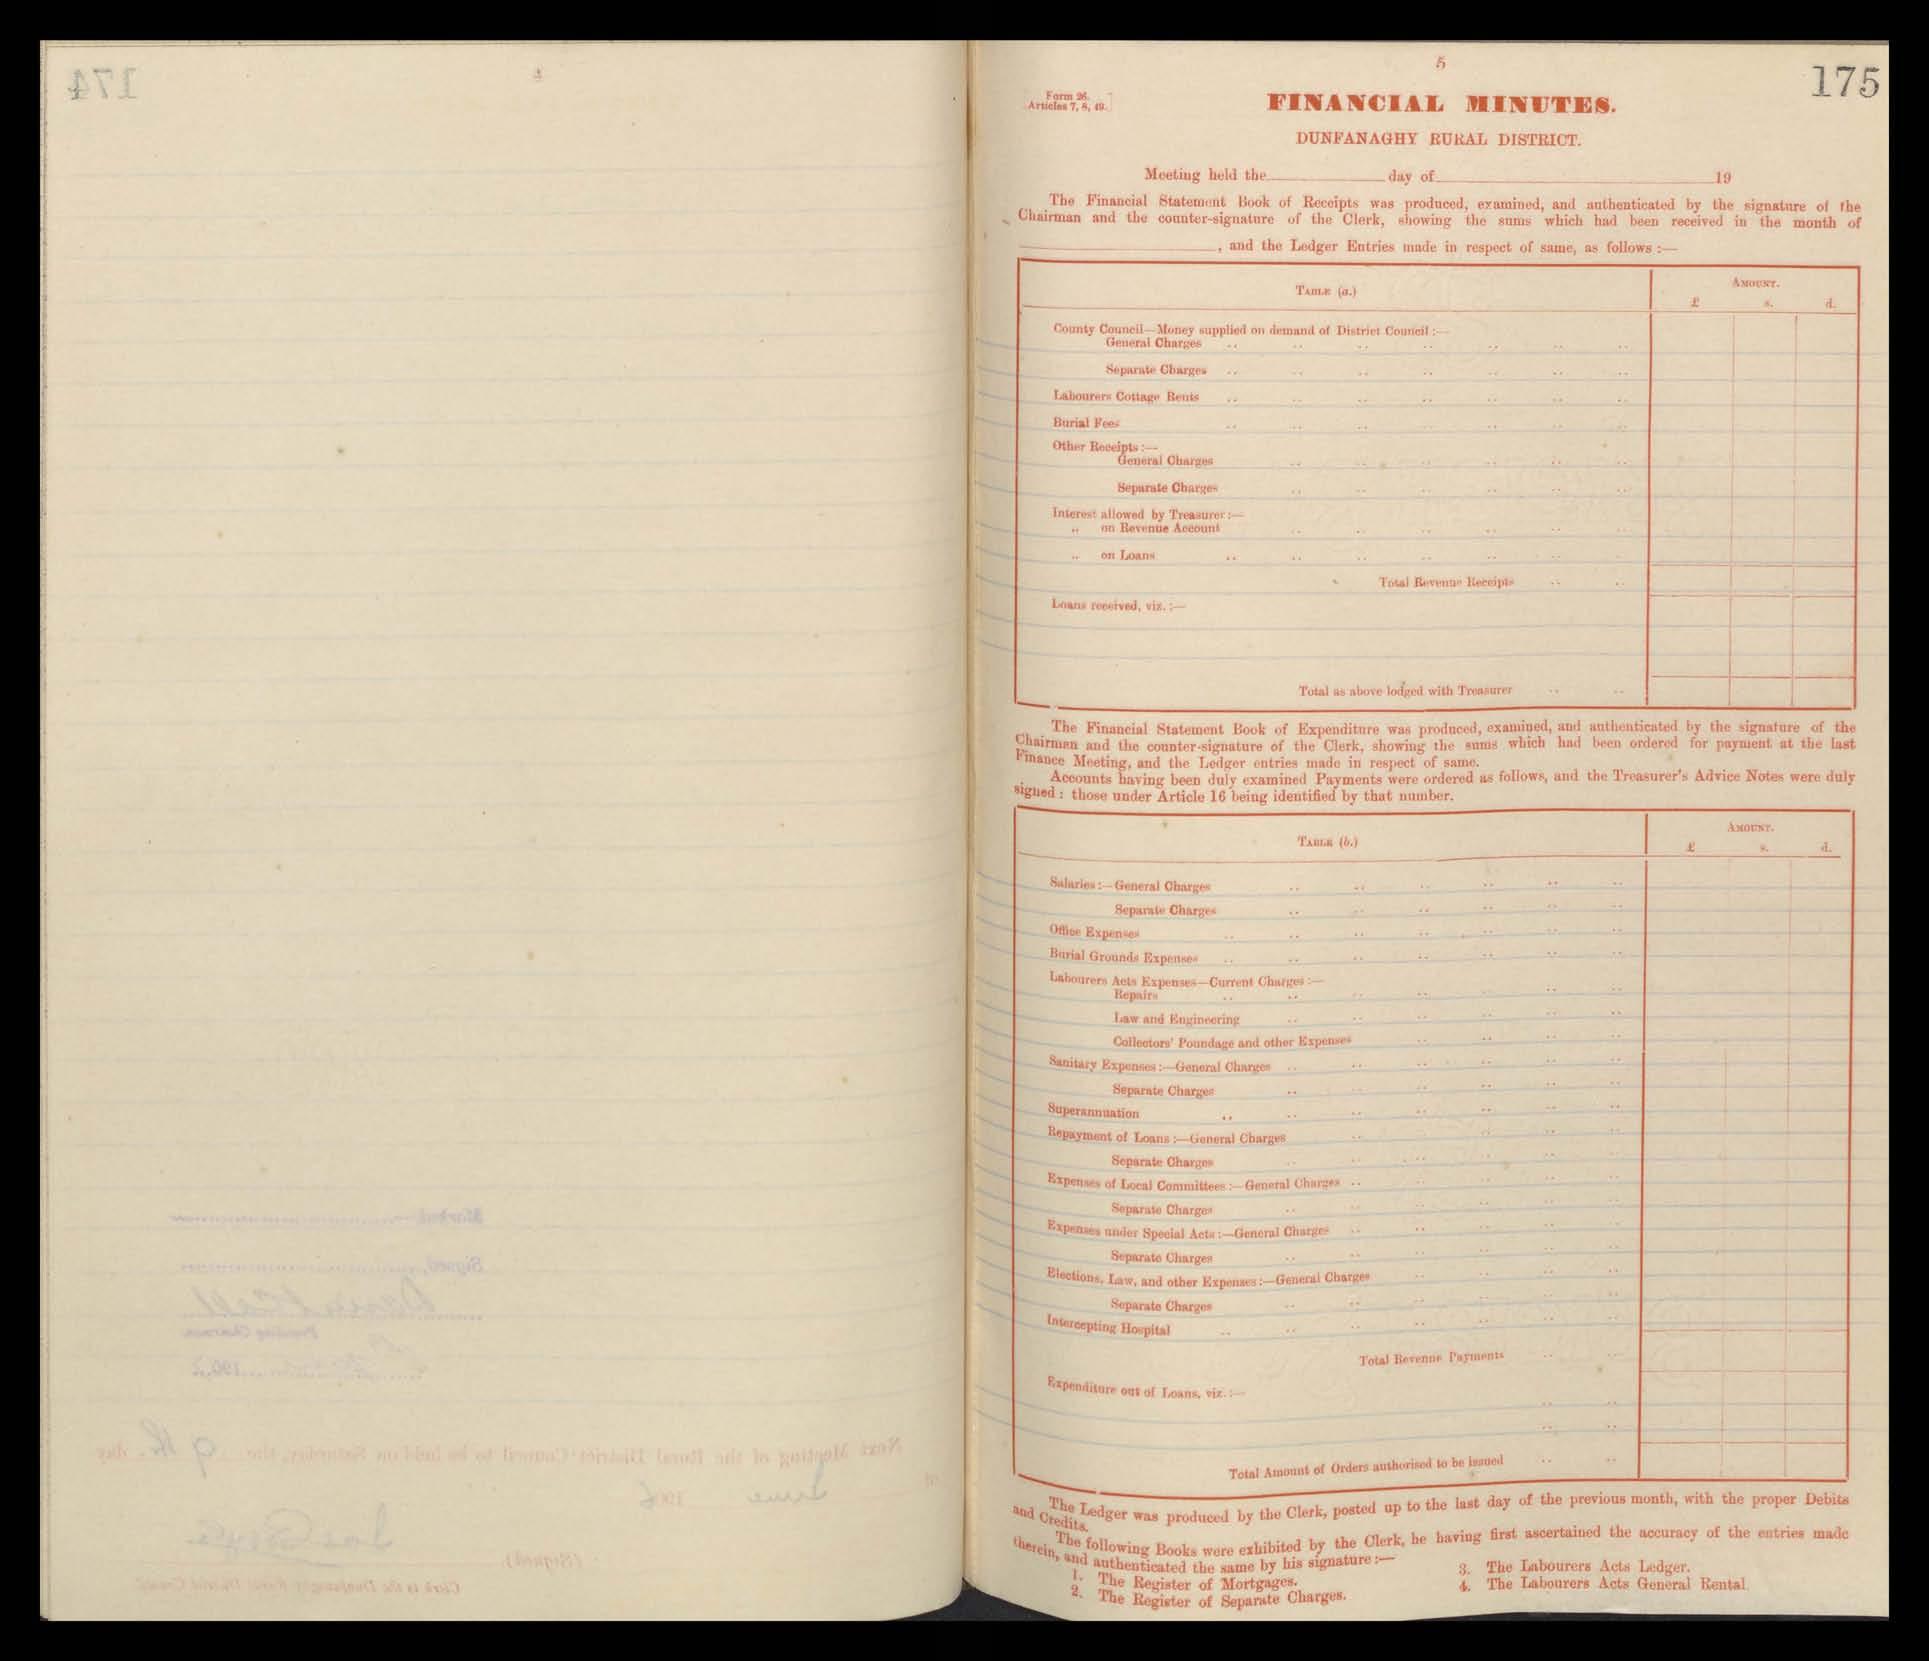 174
4
Marked
Signed,
Presiding Chairman
190
Next Meeting of the Rural District Council to be held on Saturday, the 9th day
of June 1906
(Signed)
Clerk to the Dunfanaghy Rural District Council
5
175
Form 26.
Articles 7, 8, 49.
FINANCIAL MINUTES.
DUNFANAGHY RURAL DISTRICT.
Meeting held the day of 19
The Financial Statement Book of Receipts was produced, examined, and authenticated by the signature of the
Chairman and the counter-signature of the Clerk, showing the sums which had been received in the month of
, and the Ledger Entries made in respect of same, as follows :—
TABLE (a.)
AMOUNT.
£ s. d.
County Council—Money supplied on demand of District Council :—
General Charges
Separate Charges
Labourers Cottage Rents
Burial Fees
Other Receipts :—
General Charges
Separate Charges
Interest allowed by Treasurer :—
„ on Revenue Account
„ on Loans
Total Revenue Receipts
Loans received, viz. :—
Total as above lodged with Treasurer
The Financial Statement Book of Expenditure was produced, examined, and authenticated by the signature of the
Chairman and the counter-signature of the Clerk, showing the sums which had been ordered for payment at the last
Finance Meeting, and the Ledger entries made in respect of same.
Accounts having been duly examined Payments were ordered as follows, and the Treasurer's Advice Notes were duly
signed : those under Article 16 being identified by that number.
TABLE (b.)
AMOUNT.
£ s. d.
Salaries :—General Charges
Separate Charges
Office Expenses
Burial Grounds Expenses
Labourers Acts Expenses—Current Charges :—
Repairs
Law and Engineering
Collectors' Poundage and other Expenses
Sanitary Expenses :—General Charges
Separate Charges
Superannuation
Repayment of Loans :—General Charges
Separate Charges
Expenses of Local Committees :—General Charges
Separate Charges
Expenses under Special Acts :—General Charges
Separate Charges
Elections, Law, and other Expenses :—General Charges
Separate Charges
Intercepting Hospital
Total Revenue Payments
Expenditure out of Loans, viz. :—
Total Amount of Orders authorised to be issued
The Ledger was produced by the Clerk, posted up to the last day of the previous month, with the proper Debits
and Credits.
The following Books were exhibited by the Clerk, he having first ascertained the accuracy of the entries made
therein, and authenticated the same by his signature :—
1. The Register of Mortgages.
2. The Register of Separate Charges.
3. The Labourers Acts Ledger.
4. The Labourers Acts General Rental.